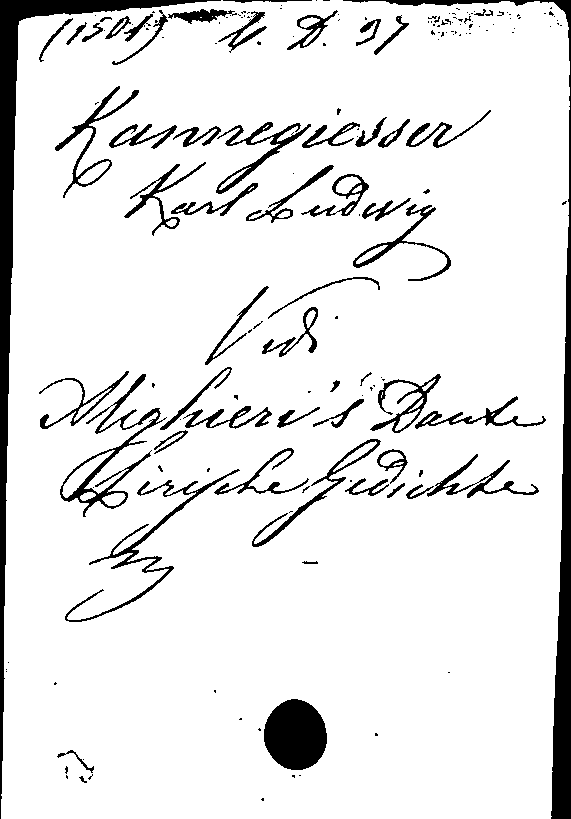 (1501) V. D. 97
Kannegiesser
Karl Ludwig
Vedi
Alighieri's Dante
Lirische Gedichte